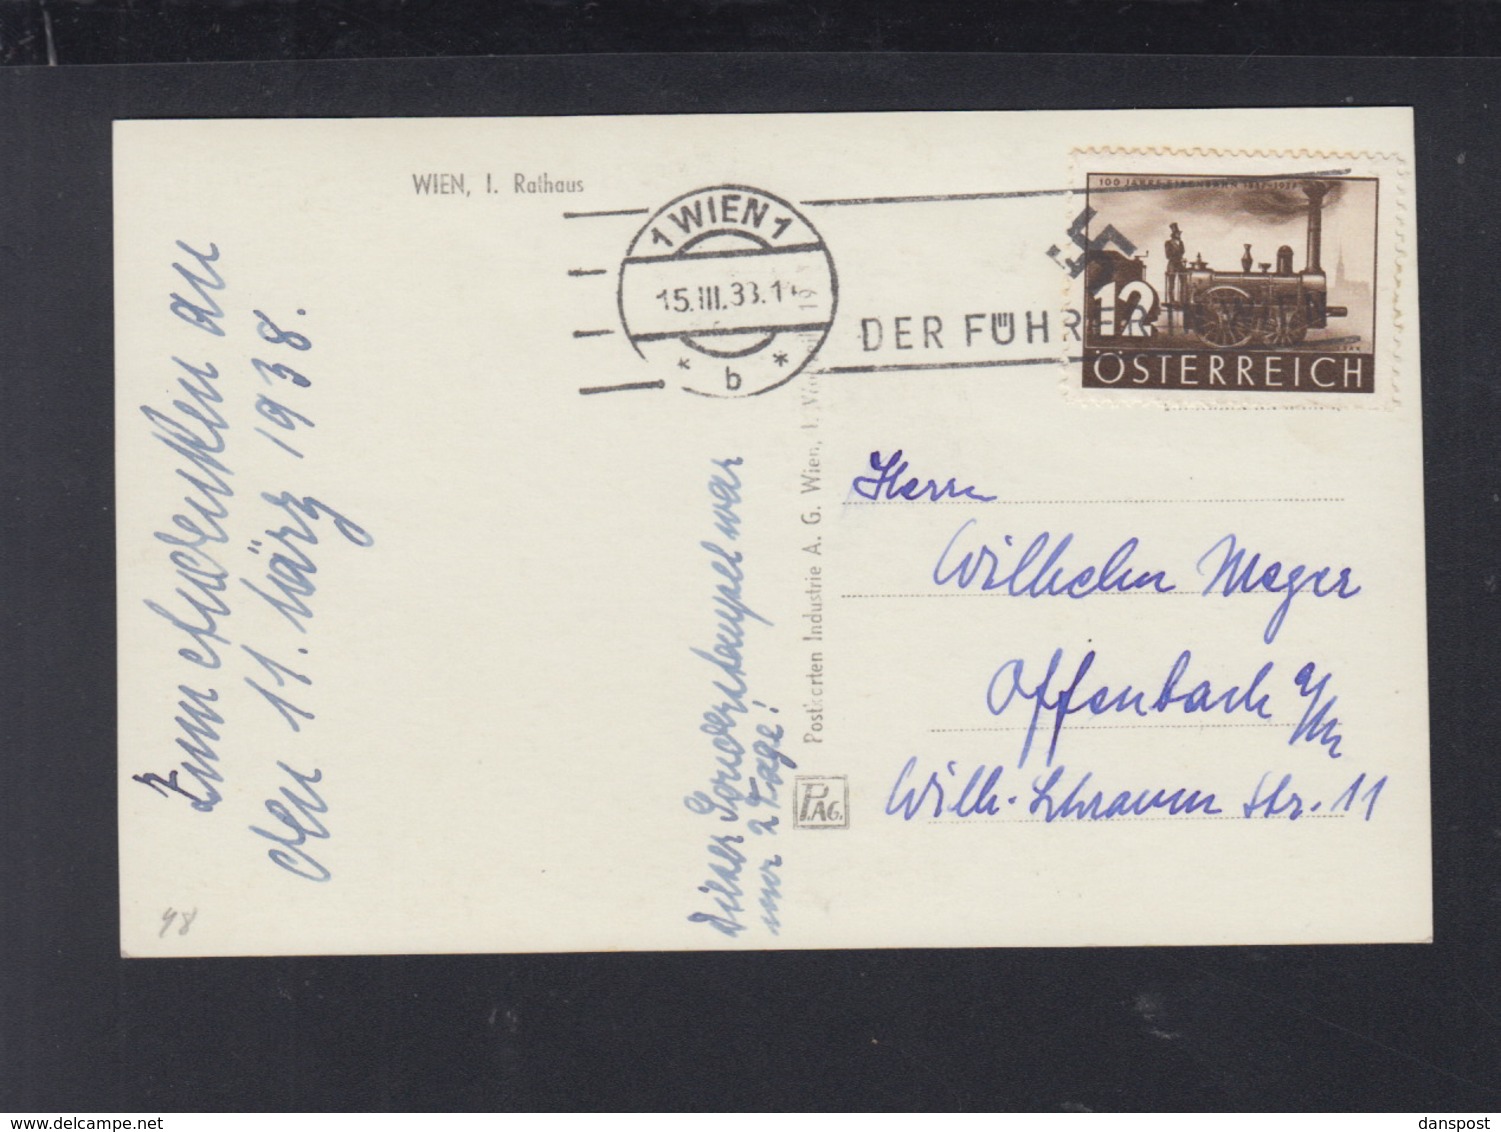 WIEN, I. Rathaus
1 WIEN 1
15.III.38.1
* b *
DER FÜHRER
100 JAHRE EISENBAHN 1837-1937
12
ÖSTERREICH
Zum Andenken an
den 11. März 1938.
Dieser Sonderstempel war
nur 2 Tage!
Postkarten Industrie A. G. Wien, I.
P.AG.
Herrn
Wilhelm Meyer
Offenbach a/M
Wilh. Schramm Str. 11
48
danspost
delcampe.net